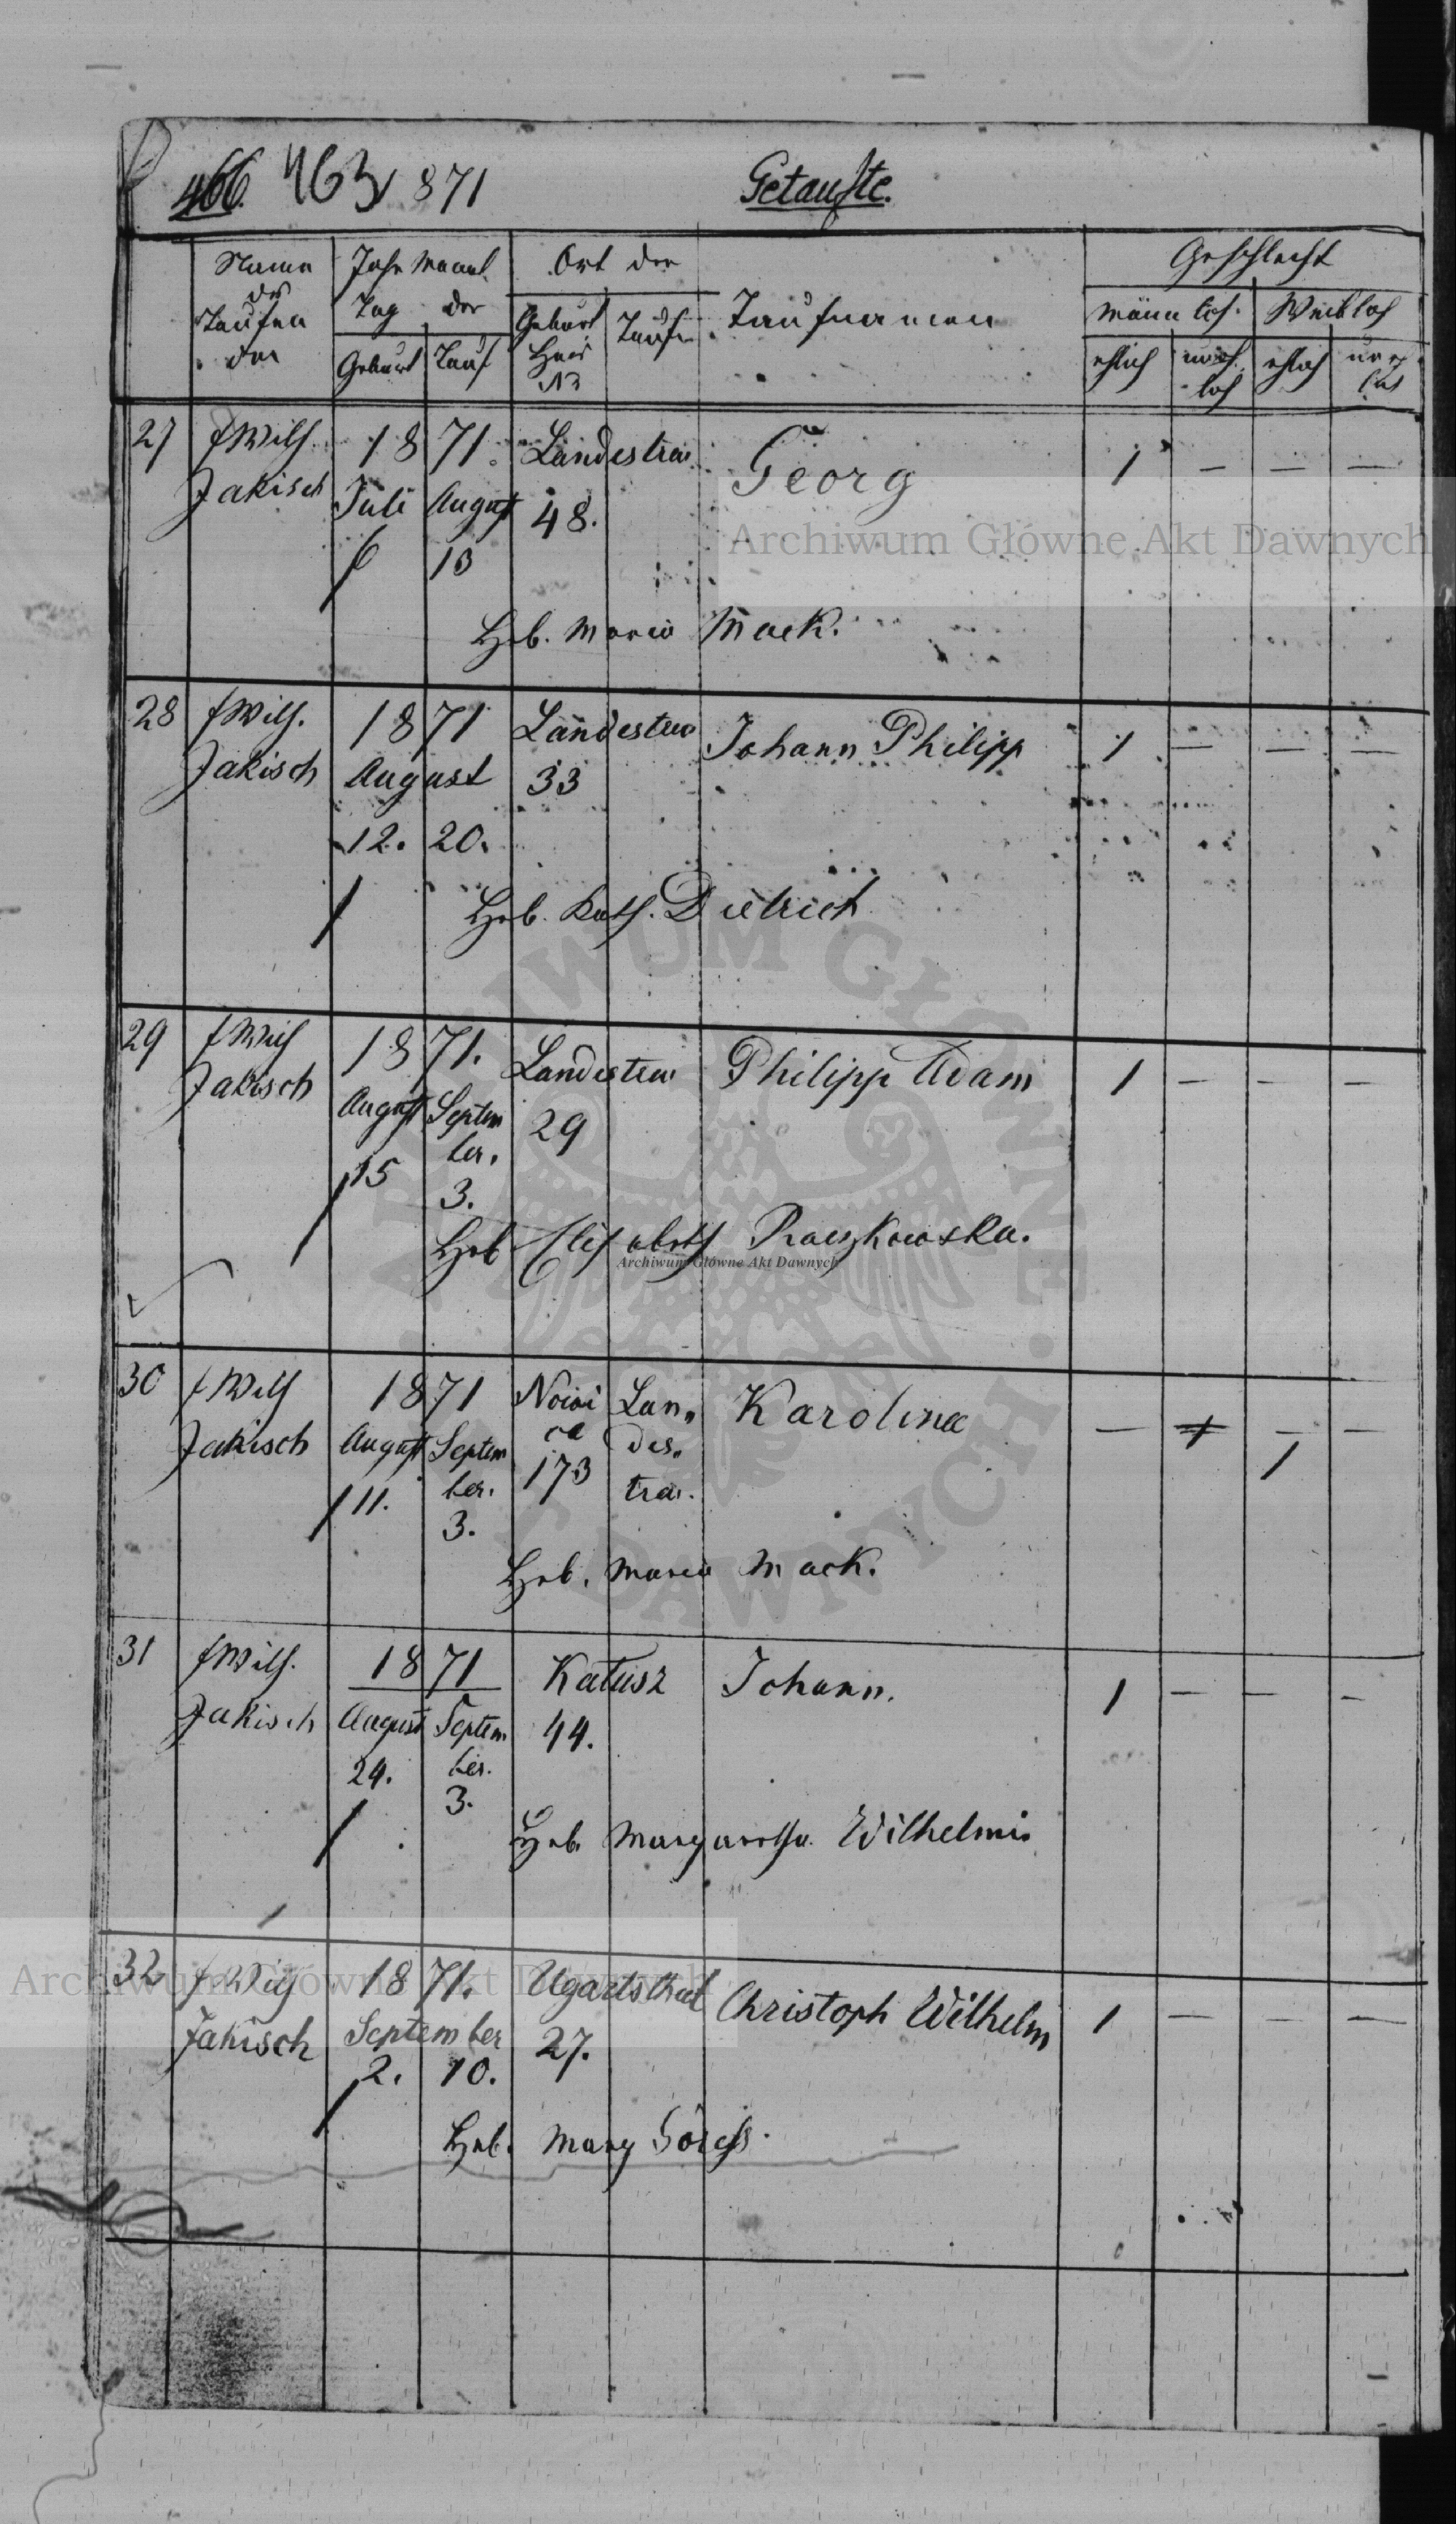 466. 463 1871 Getaufte.
Name des Taufen den
Jahr Monat Tag der
Geburt Tauf
Ort der
Geburt Haus No
Taufe
Taufnamen
Geschlecht
männlich. Weiblich
ehlich unehlich ehlich unehlich
27 Wilh. Jakisch
18 71.
Juli August
6 13
Landestreu
48.
Georg
1 — — —
Heb. Maria Mack.
28 Wilh. Jakisch
18 71
August
12. 20.
Landestreu
33
Johann Philipp
1 — — —
Heb. Kath. Dietrich
29 Wilh Jakisch
18 71.
August Septem ber.
15 3.
Landestreu
29
Philipp Adam
1 — — —
Heb Elisabeth Raczkowska.
30 Wilh Jakisch
18 71
August Septem ber.
11. 3.
Nowi ca
173
Lan„ des„ treu.
Karolina
— 1 —
1
Heb. Maria Mack.
31 Wilh. Jakisch
18 71
August Septem ber.
24. 3.
Katusz
44.
Johann.
1 — — —
Heb. Margaretha Wilhelmi
32 Wilh Jakisch
18 71.
September
2. 10.
Ugartsthal
27.
Christoph Wilhelm
1 — — —
Heb. Marg
Archiwum Główne Akt Dawnych
Archiwum Główne Akt Dawnych
Archiwum Główne Akt Dawnych
ARCHIWUM GŁÓWNE AKT DAWNYCH